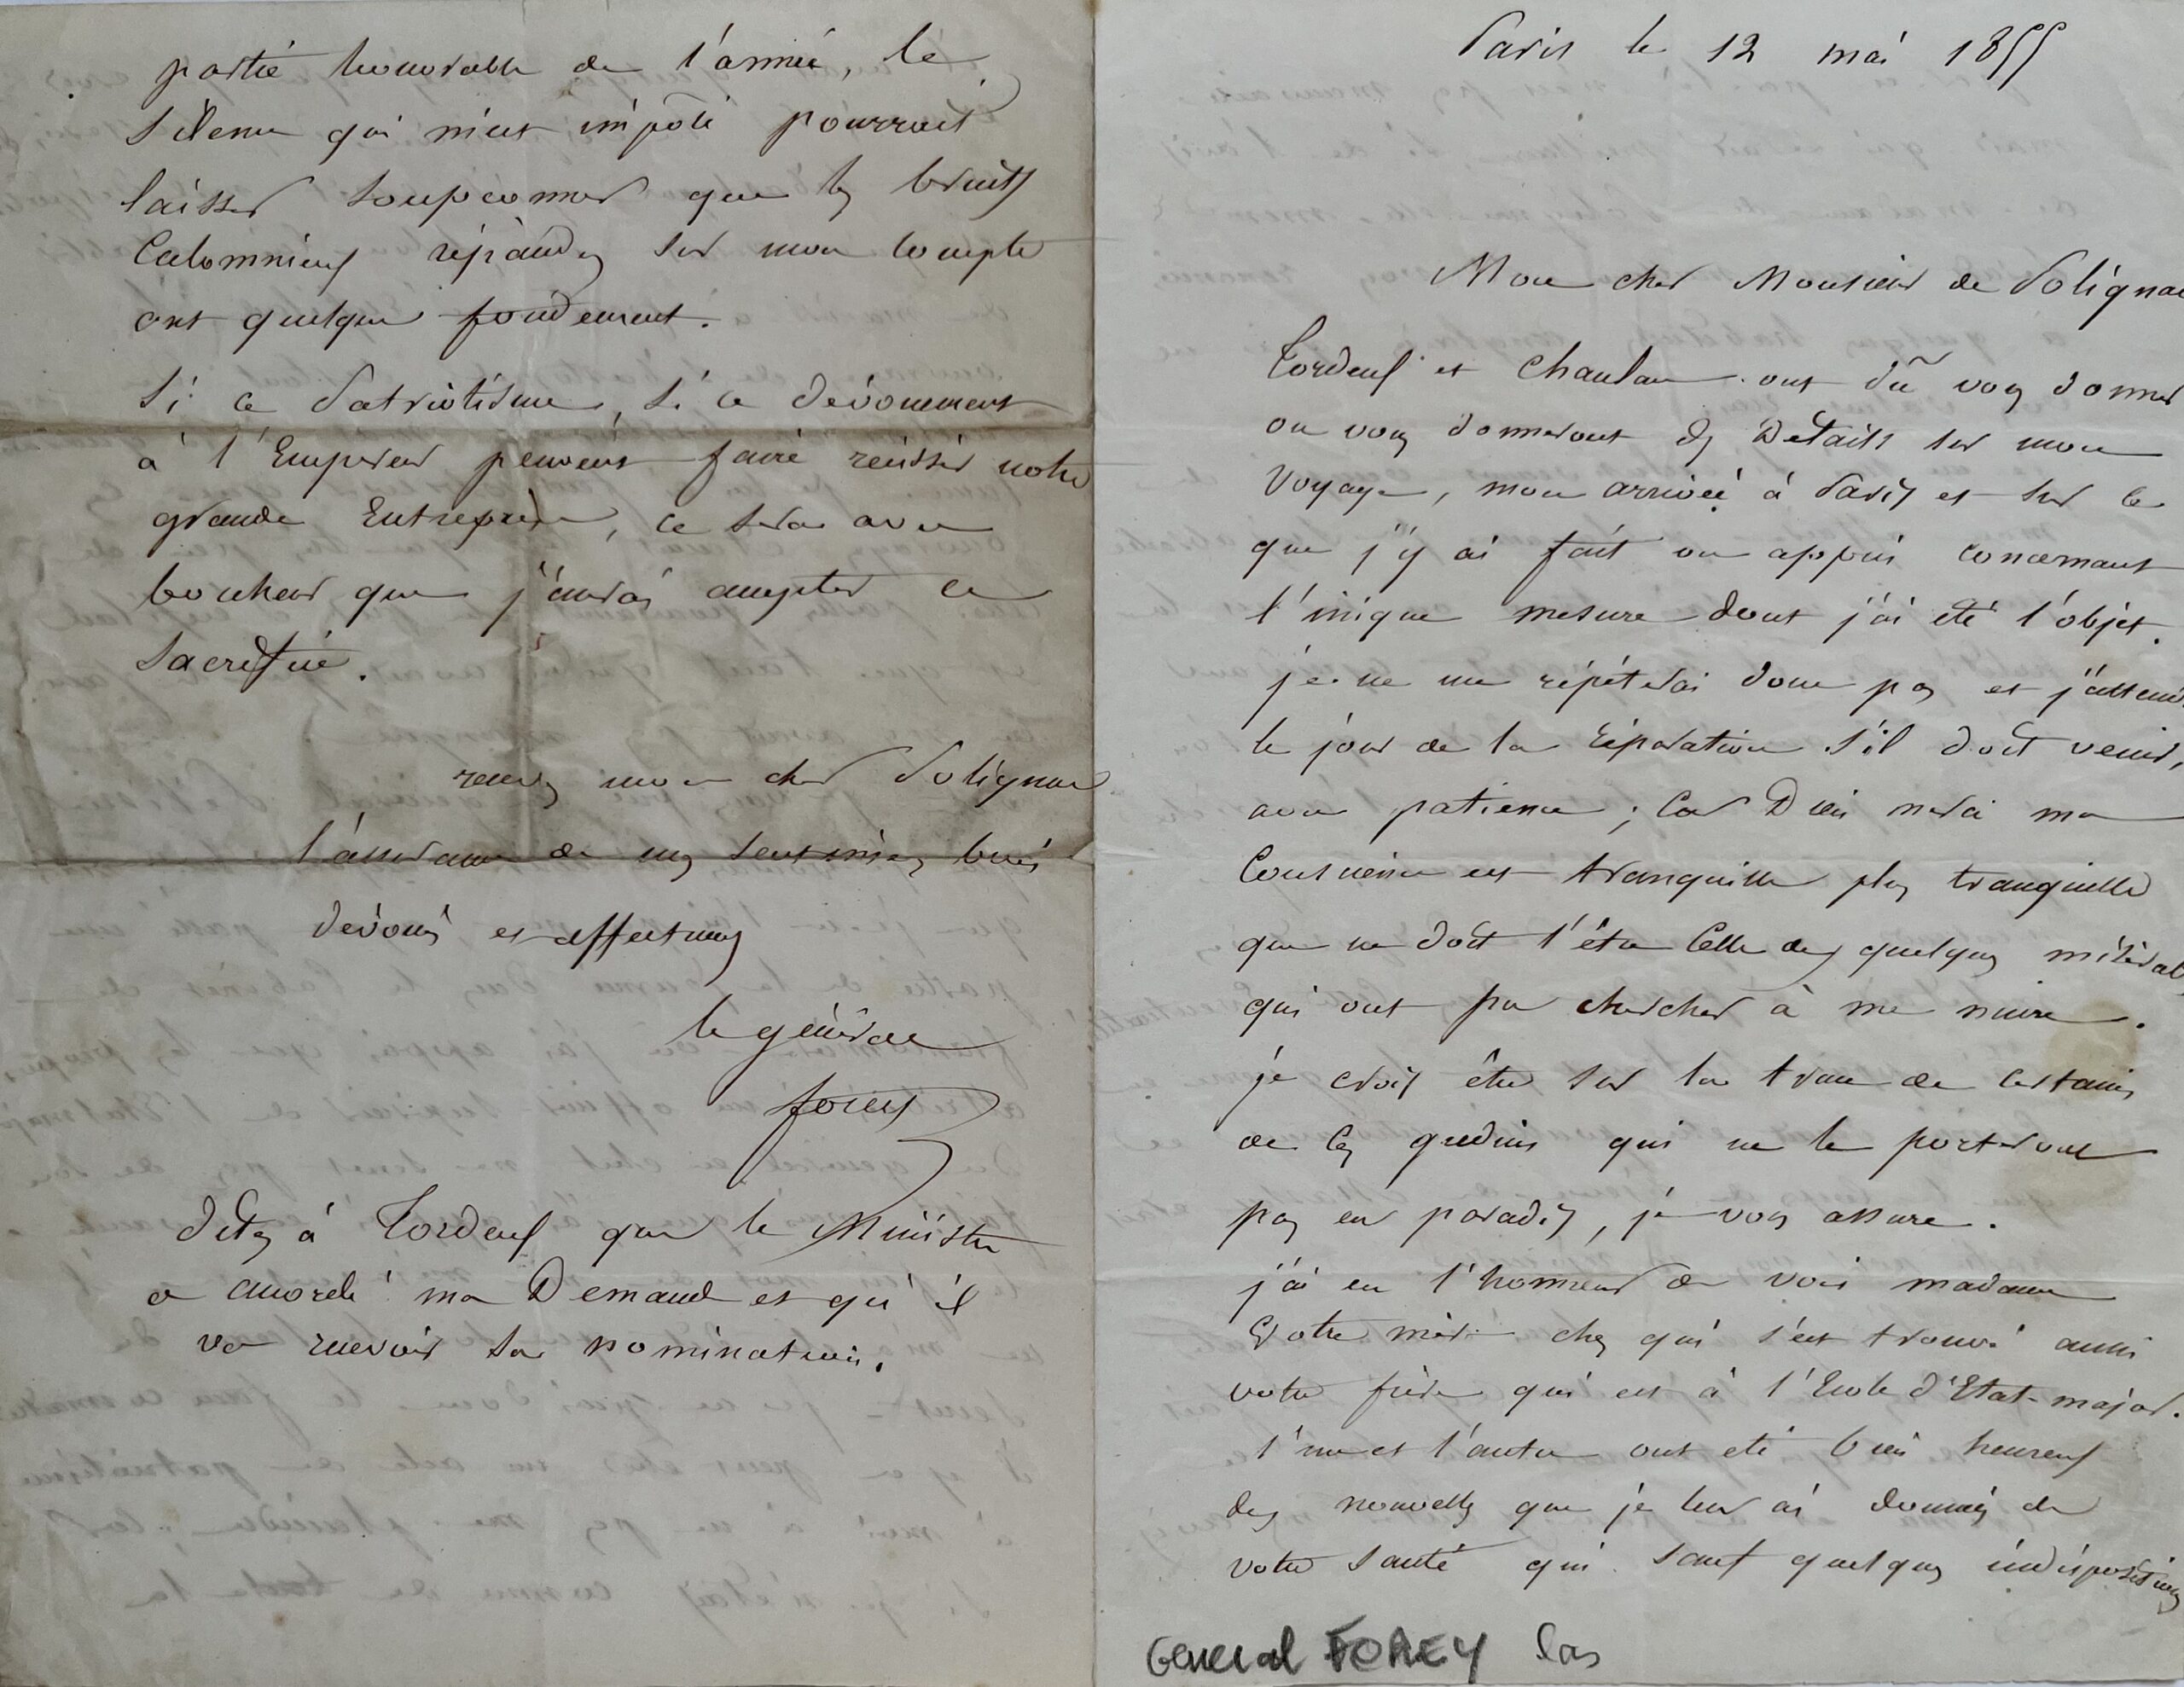 Paris le 12 mai 1855
Mon cher Monsieur de Polignac
Tordeux et Chaulan ont dû vous donner
ou vous donneront des Détails sur mon
Voyage, mon arrivée à Paris et sur ce
que j'y ai fait ou appris concernant
l'inique mesure dont j'ai été l'objet.
je ne me répéterai donc pas et j'attends
le jour de la réparation s'il doit venir,
avec patience ; Car Dieu merci ma
Conscience est tranquille plus tranquille
que ne doit l'être Celle des quelques misérables
qui ont pu chercher à me nuire.
je crois être sur la trace de certains
de ces gredins qui ne le porteront
pas en paradis, je vous assure.
j'ai eu l'honneur de voir madame
Votre mère chez qui s'est trouvé aussi
votre frère qui est à l'Ecole d'Etat-major.
l'une et l'autre ont été bien heureux
des nouvelles que je leur ai données de
votre santé qui sauf quelques indispositions
General FOREY Las
partie honorable de l'armée, le
silence qui m'est imposé pourrait
laisser soupçonner que les bruits
Calomnieux répandus sur mon compte
ont quelque fondement.
Si ce Patriotisme, si ce dévouement
à l'Empereur peuvent faire réussir notre
grande Entreprise, ce sera avec
bonheur que j'aurai accepté ce
sacrifice.
recevez mon cher Polignac
l'assurance de mes sentiments bien
dévoués et affectueux
le général
forey
dites à Tordeux que le Ministre
a accordé ma Demande et qu'il
va recevoir sa nomination.